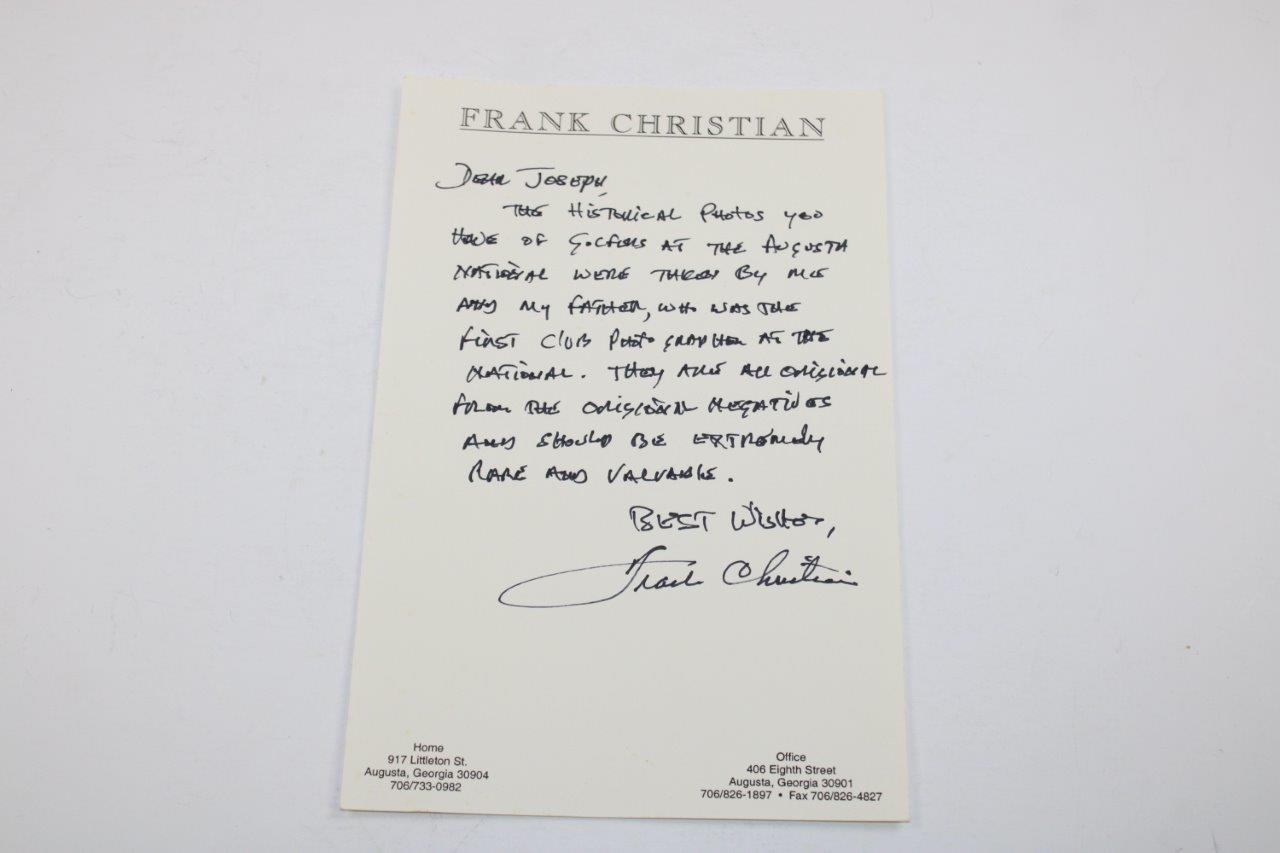 FRANK CHRISTIAN
Dear Joseph,
The Historical Photos you
have of golfers at the Augusta
National were taken by me
and my father, who was the
first club photographer at the
National. They are all origional
from the origional negatives
and should be extremely
rare and valuable.
Best Wishes,
Frank Christian
Home
917 Littleton St.
Augusta, Georgia 30904
706/733-0982
Office
406 Eighth Street
Augusta, Georgia 30901
706/826-1897 • Fax 706/826-4827